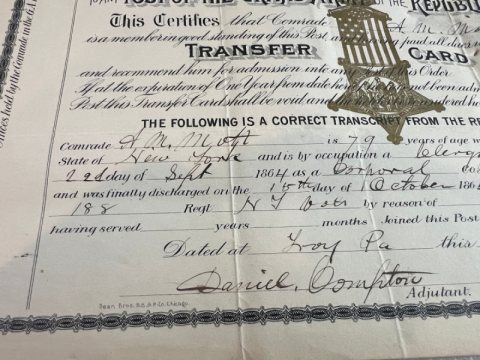 POST OF THE GRAND ARMY OF THE REPUBLIC
This Certifies that Comrade A. M. Mo
is a member in good standing of this Post and having paid all dues
TRANSFER CARD
and recommend him for admission into any Post of this Order
If at the expiration of One Year from date hereof he has not been adm
Post this Transfer Card shall be void and
THE FOLLOWING IS A CORRECT TRANSCRIPT FROM THE RE
Comrade A. M. Mott is 79 years of age w
State of New York and is by occupation a Clerg
22d day of Sept 1864 as a Corporal Co
and was finally discharged on the 15th day of October 186
188 Regt N Y Vols by reason of
having served years months Joined this Post
Dated at Troy Pa this
Daniel Compton
Adjutant.
Dean Bros. B.B.& P. Co. Chicago.